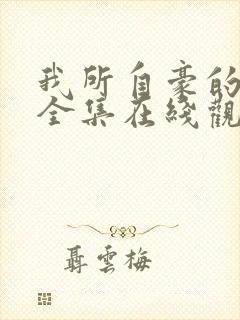 我所自豪的
全集在綫觀
聶雲梅